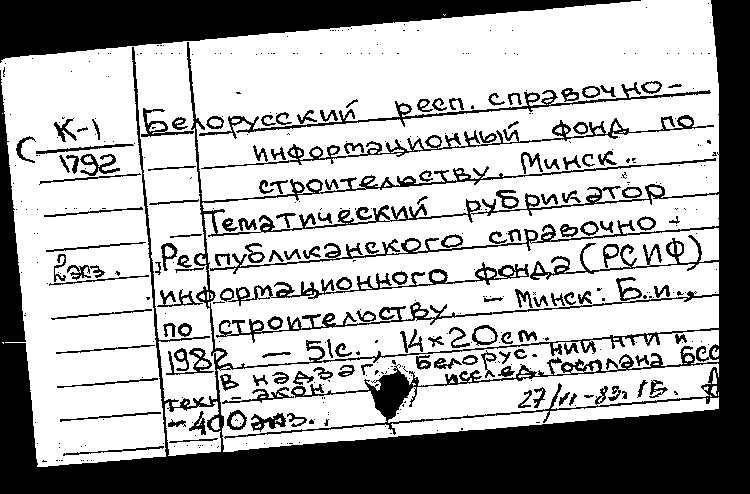 Белорусский респ. справочно-
С К-1
1792
информационный фонд по
строительству. Минск..
Тематический рубрикатор
Республиканского справочно-
экз.
информационного фонда (РСИФ)
по строительству. – Минск: Б.и.,
1982. – 51с.; 14×20cm.
В надзаг. Белорус. НИИ НТИ и
техн.-экон. исслед. Госплана БСС
–400экз.
27/VI-83.